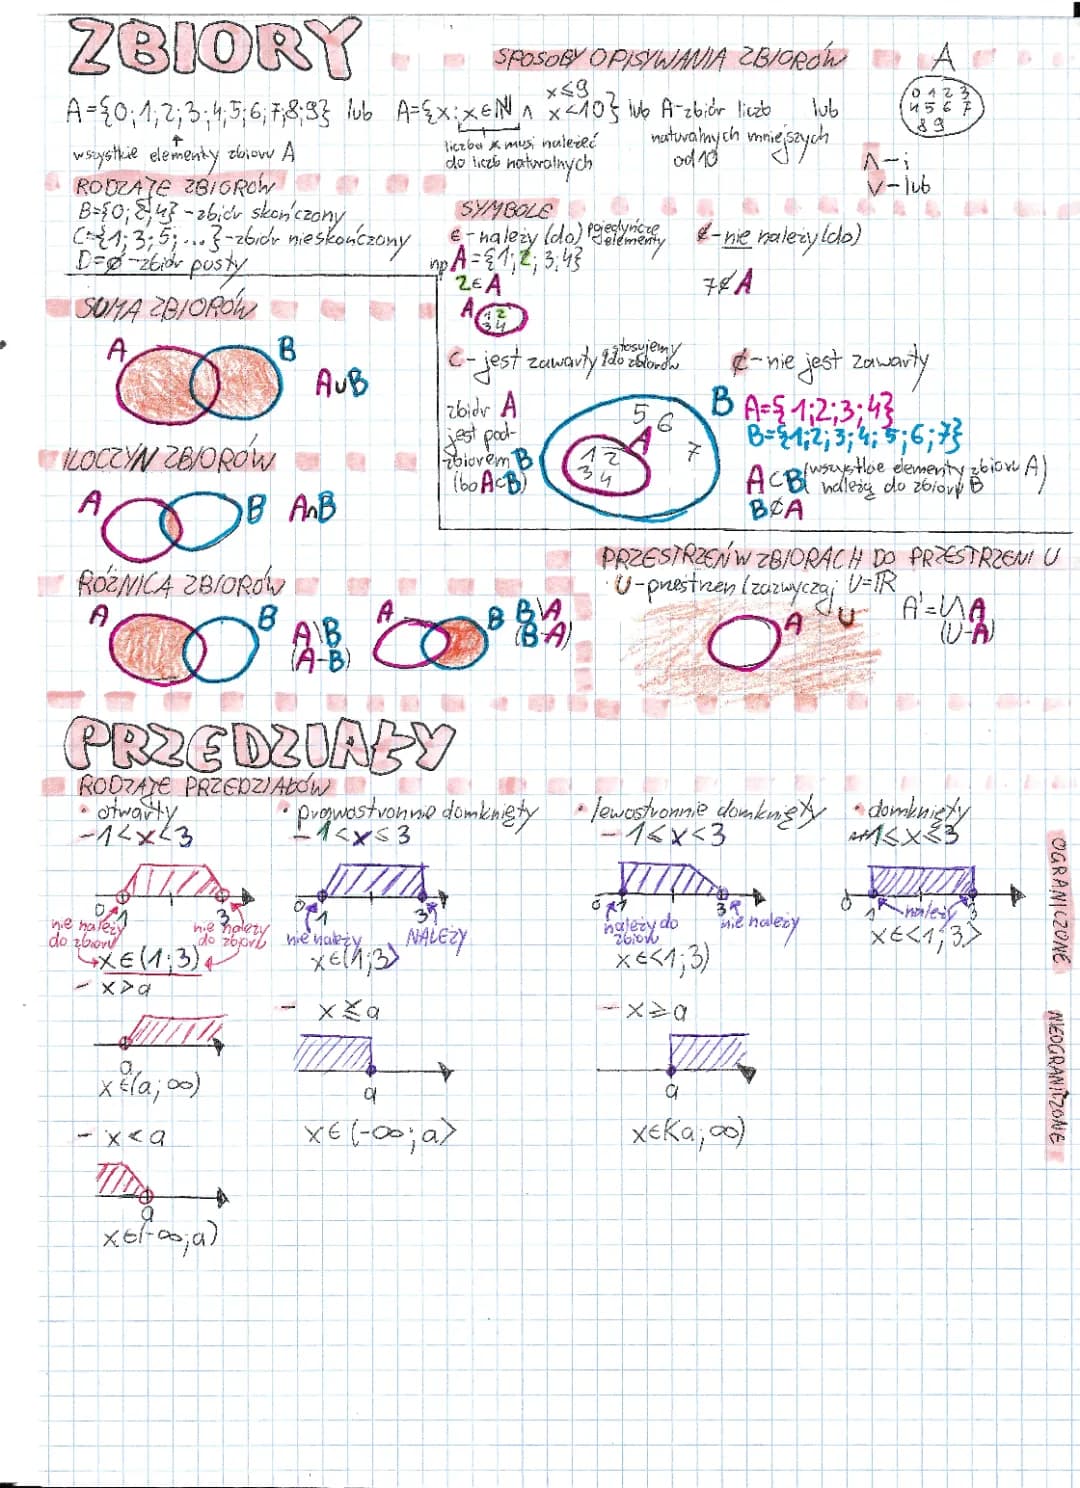 ZBIORY
SPOSOBY OPISYWANIA ZBIORÓW
A
0 1 2 3
4 5 6 7
8 9
x≤9
A={0;1;2;3;4;5;6;7;8;9} lub A={x:x∈ℕ ∧ x<10} lub A-zbiór liczb lub
naturalnych mniejszych
od 10
wszystkie elementy zbioru A
liczba x musi należeć
do liczb naturalnych
∧-i
∨-lub
RODZAJE ZBIORÓW
B={0;2;4} - zbiór skończony
C={1;3;5;...} - zbiór nieskończony
D=ø - zbiór pusty
SYMBOLE
∈ - należy (do) pojedyńcze elementy
∉ - nie należy (do)
np A={1;2;3;4}
2∈A
7∉A
A
1 2
3 4
⊂ - jest zawarty stosujemy do zbiorów
⊄ - nie jest zawarty
zbiór A
jest pod-
zbiorem B
(bo A⊂B)
5 6
7
A
1 2
3 4
B
A={1;2;3;4}
B={1;2;3;4;5;6;7}
A⊂B (wszystkie elementy zbioru A)
należą do zbioru B
B⊄A
SUMA ZBIORÓW
A B
A∪B
ILOCZYN ZBIORÓW
A B A∩B
RÓŻNICA ZBIORÓW
A B
A\B
(A-B)
A B
B\A
(B-A)
PRZESTRZEŃ W ZBIORACH DO PRZESTRZENI U
U-przestrzeń (zazwyczaj U=ℝ
A U
A'=U\A
(U-A)
PRZEDZIAŁY
RODZAJE PRZEDZIAŁÓW
• otwarty
- 1<x<3
0 1 3
nie należy
do zbioru
nie należy
do zbioru
x∈(1;3)
• prawostronnie domknięty
- 1<x≤3
0 1 3
nie należy
NALEŻY
x∈(1;3>
• lewostronnie domknięty
- 1≤x<3
0 1 3
należy do
zbioru
nie należy
x∈<1;3)
• domknięty
1≤x≤3
0 1 3
należy
x∈<1;3>
OGRANICZONE
- x>a
a
x∈(a;∞)
- x≤a
a
x∈(-∞;a>
- x≥a
a
x∈<a;∞)
NIEOGRANICZONE
- x<a
a
x∈(-∞;a)